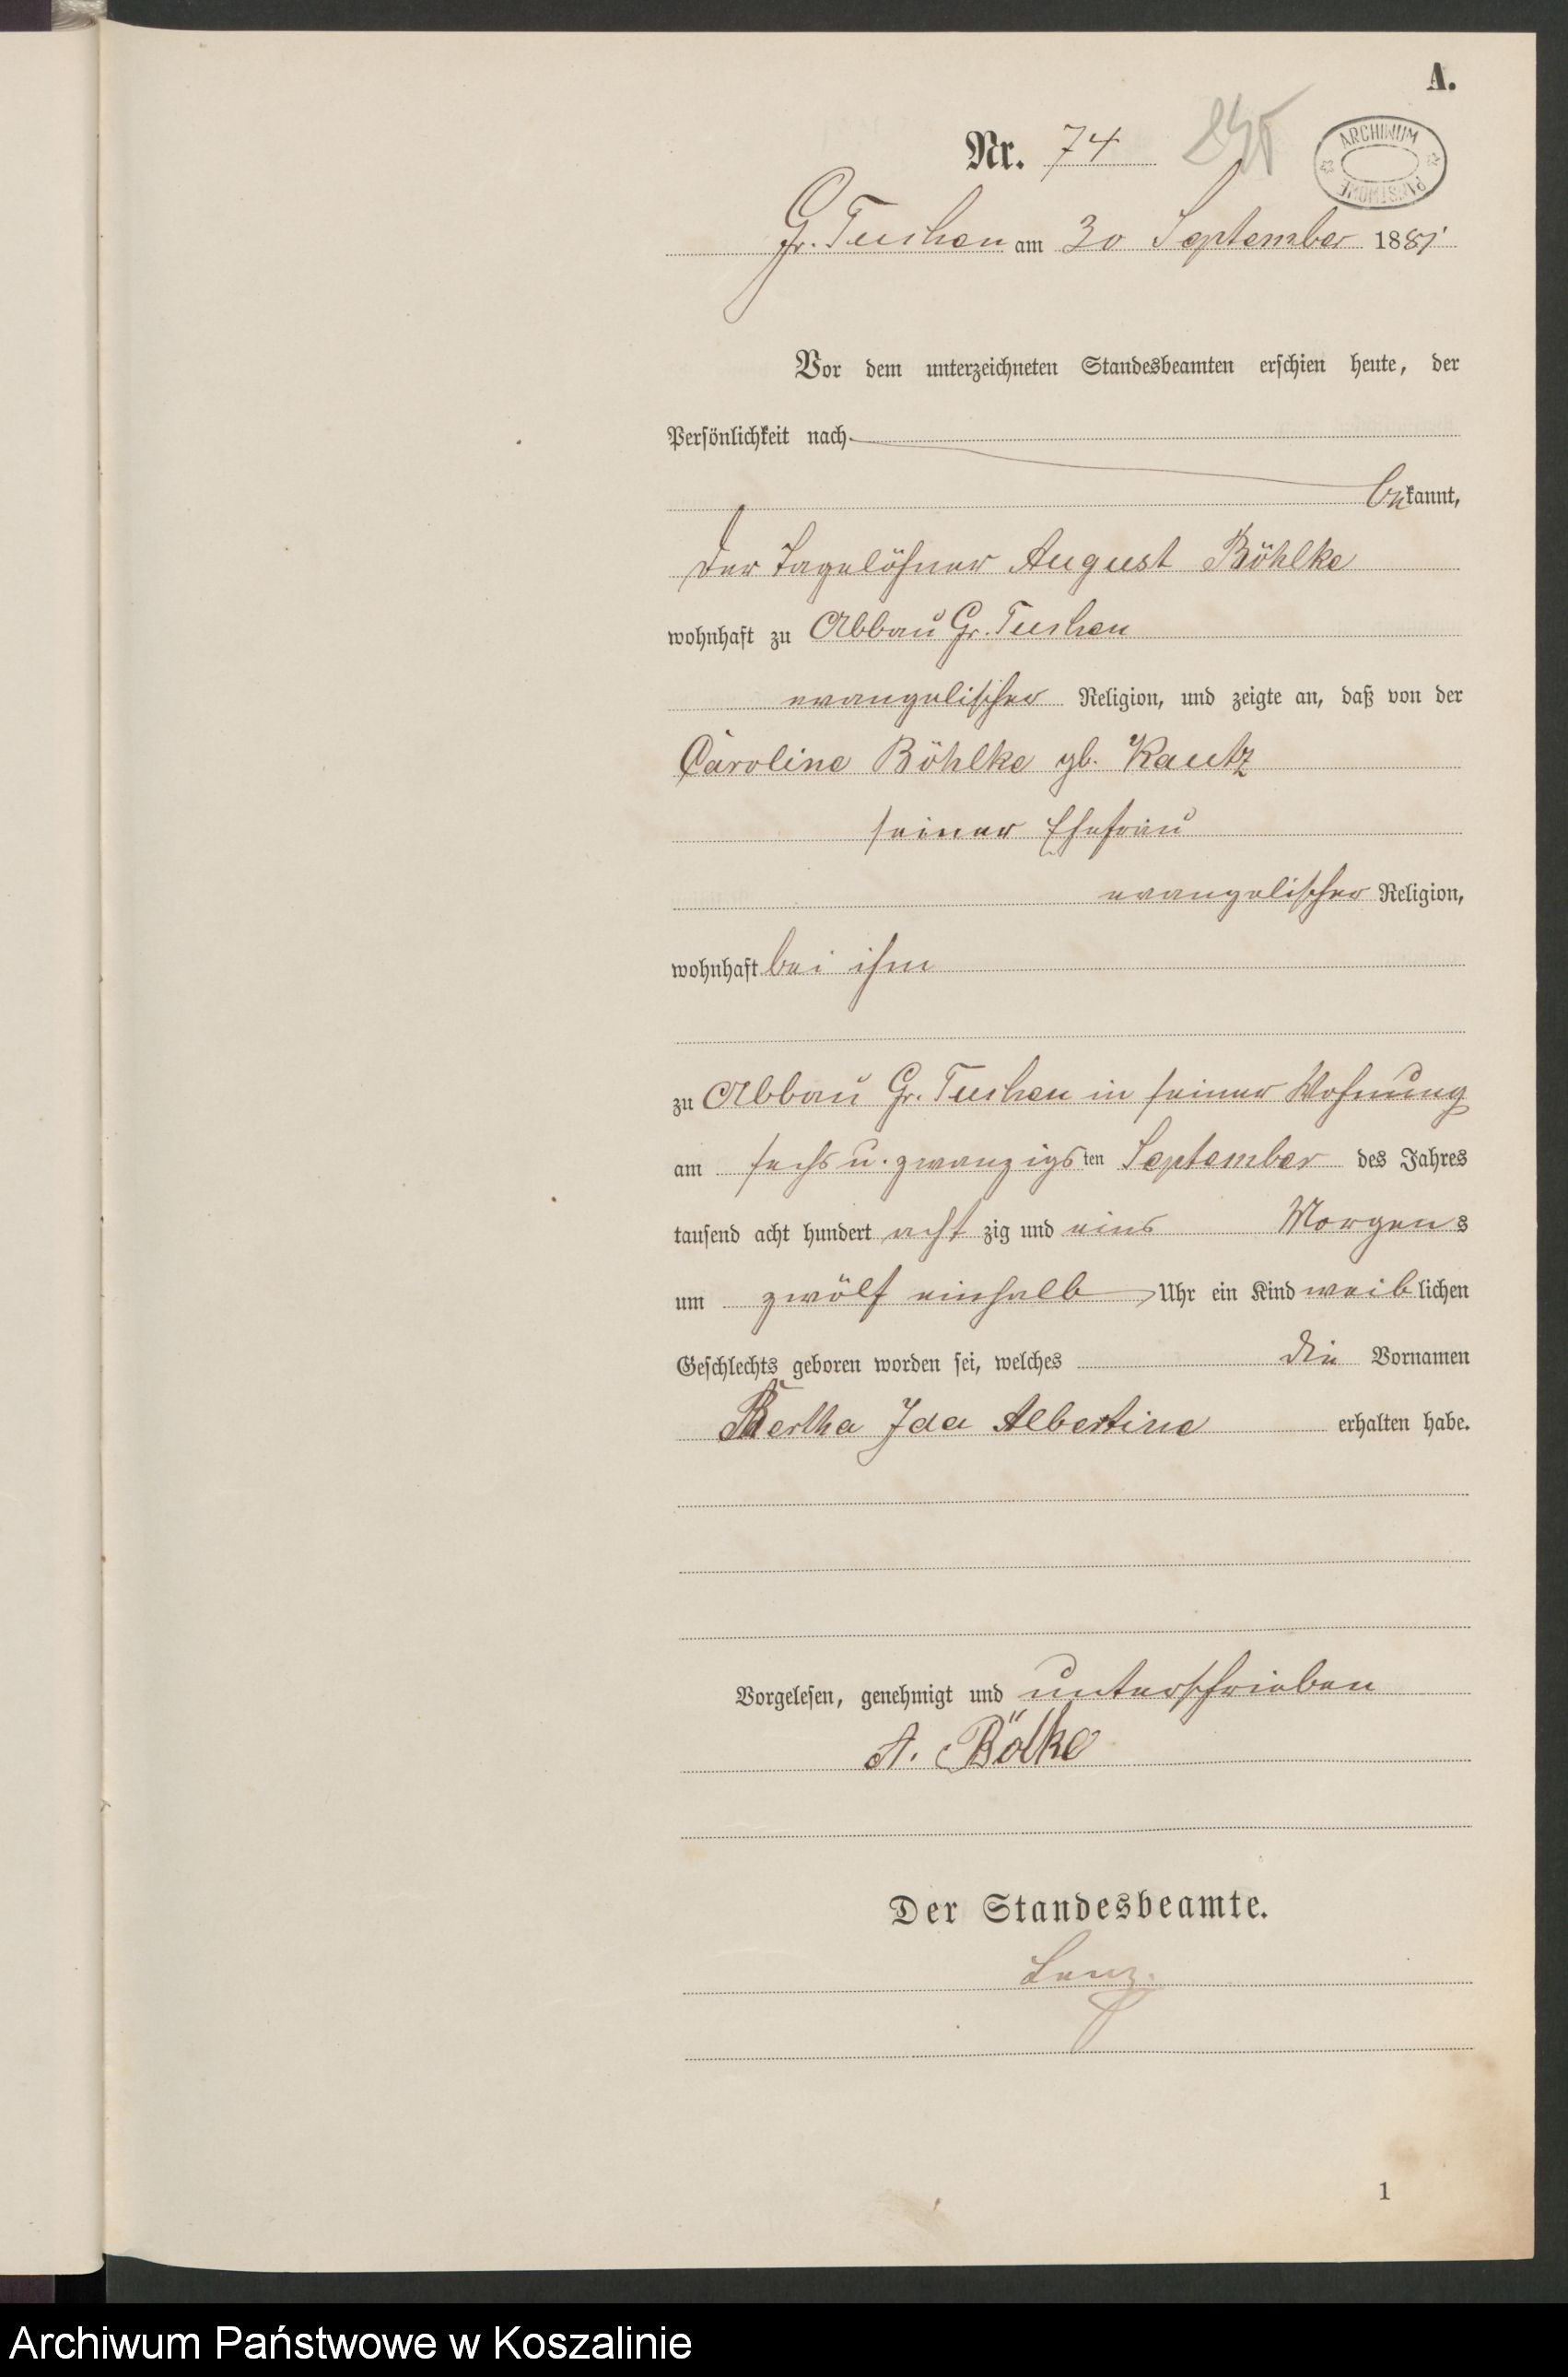 A.
Nr. 74
ARCHIWUM PAŃSTWOWE
Gr. Tuchen am 30 September 1881
Vor dem unterzeichneten Standesbeamten erschien heute, der
Persönlichkeit nach
bekannt,
der Tagelöhner August Böhlke
wohnhaft zu Abbau Gr. Tuchen
evangelischer Religion, und zeigte an, daß von der
Caroline Böhlke gb. Kautz
seiner Ehefrau
evangelischer Religion,
wohnhaft bei ihm
zu Abbau Gr. Tuchen in seiner Wohnung
am sechs u. zwanzigsten September des Jahres
tausend acht hundert acht zig und eins Morgens
um zwölf einhalb Uhr ein Kind weiblichen
Geschlechts geboren worden sei, welches die Vornamen
Bertha Ida Albertine erhalten habe.
Vorgelesen, genehmigt und unterschrieben
A. Bölke
Der Standesbeamte.
Lenz.
1
Archiwum Państwowe w Koszalinie